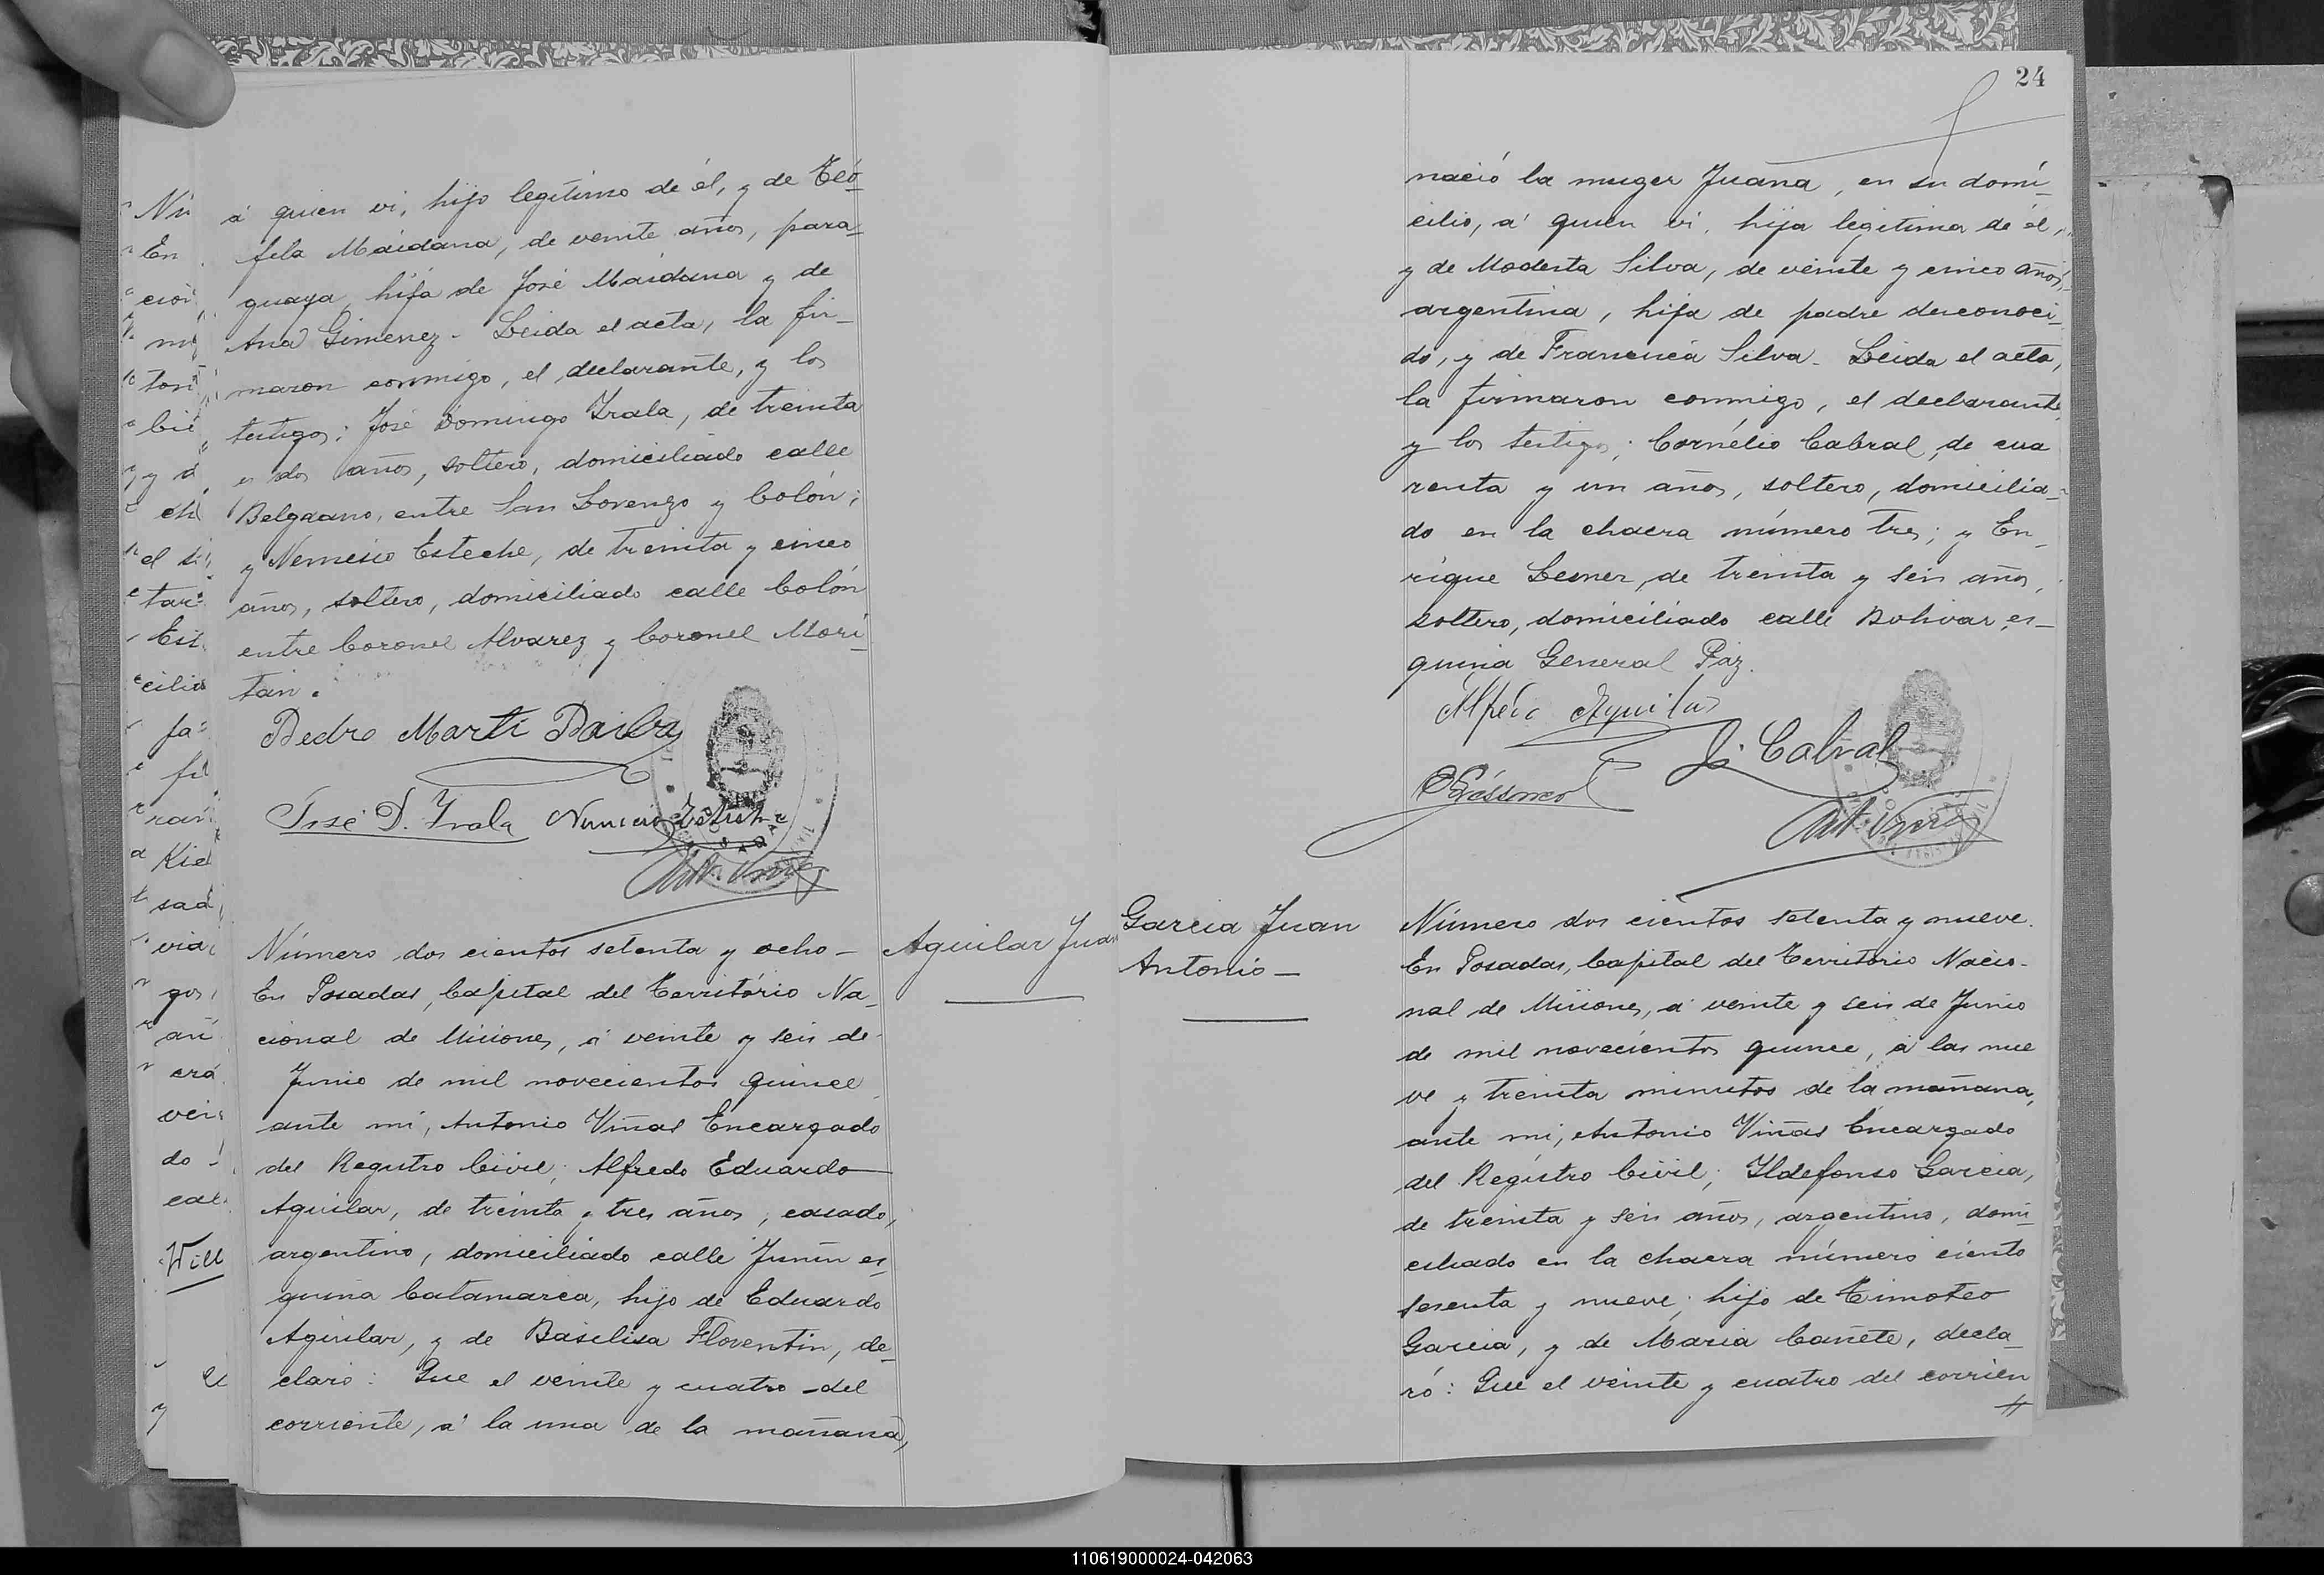 á quien vi, hijo legítimo de él, y de Teó-
fila Maidana, de veinte años, para-
guaya, hija de José Maidana y de
Ana Gimenez. Leida el acta, la fir-
maron conmigo, el declarante, y los
testigos: José Domingo Irala, de treinta
y dos años, soltero, domiciliado calle
Belgrano, entre San Lorenzo y Colón;
y Nemesio Esteche, de treinta y cinco
años, soltero, domiciliado calle Colón
entre Coronel Alvarez y Coronel Mori-
tan.
Pedro Marti
José D. Irala
Número dos cientos setenta y ocho—
Aguilar Juan
En Posadas, Capital del Território Na-
cional de Misiones, á veinte y seis de
Junio de mil novecientos quince
ante mi, Antonio Viñas Encargado
del Registro Civil; Alfredo Eduardo
Aguilar, de treinta y tres años, casado,
argentino, domiciliado calle Junin es-
quina Catamarca, hijo de Eduardo
Aguilar, y de Basilisa Florentin, de-
claró: Que el veinte y cuatro del
corriente, á la una de la mañana,
Nú
En
cion
tori
bié
y d
ch
el s
tar
Est
cilio
fa
fil
ran
Kie
sad
via
gos
añ
era
vei
do
cal
Will
24
nació la muger Juana, en su domi-
cilio, á quien vi, hija legitima de él,
y de Modesta Silva, de veinte y cinco años,
argentina, hija de padre desconoci-
do, y de Francisca Silva. Leida el acta,
la firmaron conmigo, el declarante
y los testigos: Cornélio Cabral, de cua
renta y un años, soltero, domicilia-
do en la chacra número tres; y En-
rique de treinta y seis años,
soltero, domiciliado calle Bolivar es-
quina General Paz.
Aguilar
Cabral
Garcia Juan
Antonio—
Número dos cientos setenta y nueve.
En Posadas, Capital del Território Nacio-
nal de Misiones, á veinte y seis de Junio
de mil novecientos quince, á las nue
ve y treinta minutos de la mañana,
ante mi, Antonio Viñas Encargado
del Registro Civil; Ildefonso Garcia,
de treinta y seis años, argentino, domi-
ciliado en la chacra número ciento
sesenta y nueve; hijo de Timoteo
Garcia, y de Maria Cañete, decla-
ró: Que el veinte y cuatro del corrien
110619000024-042063